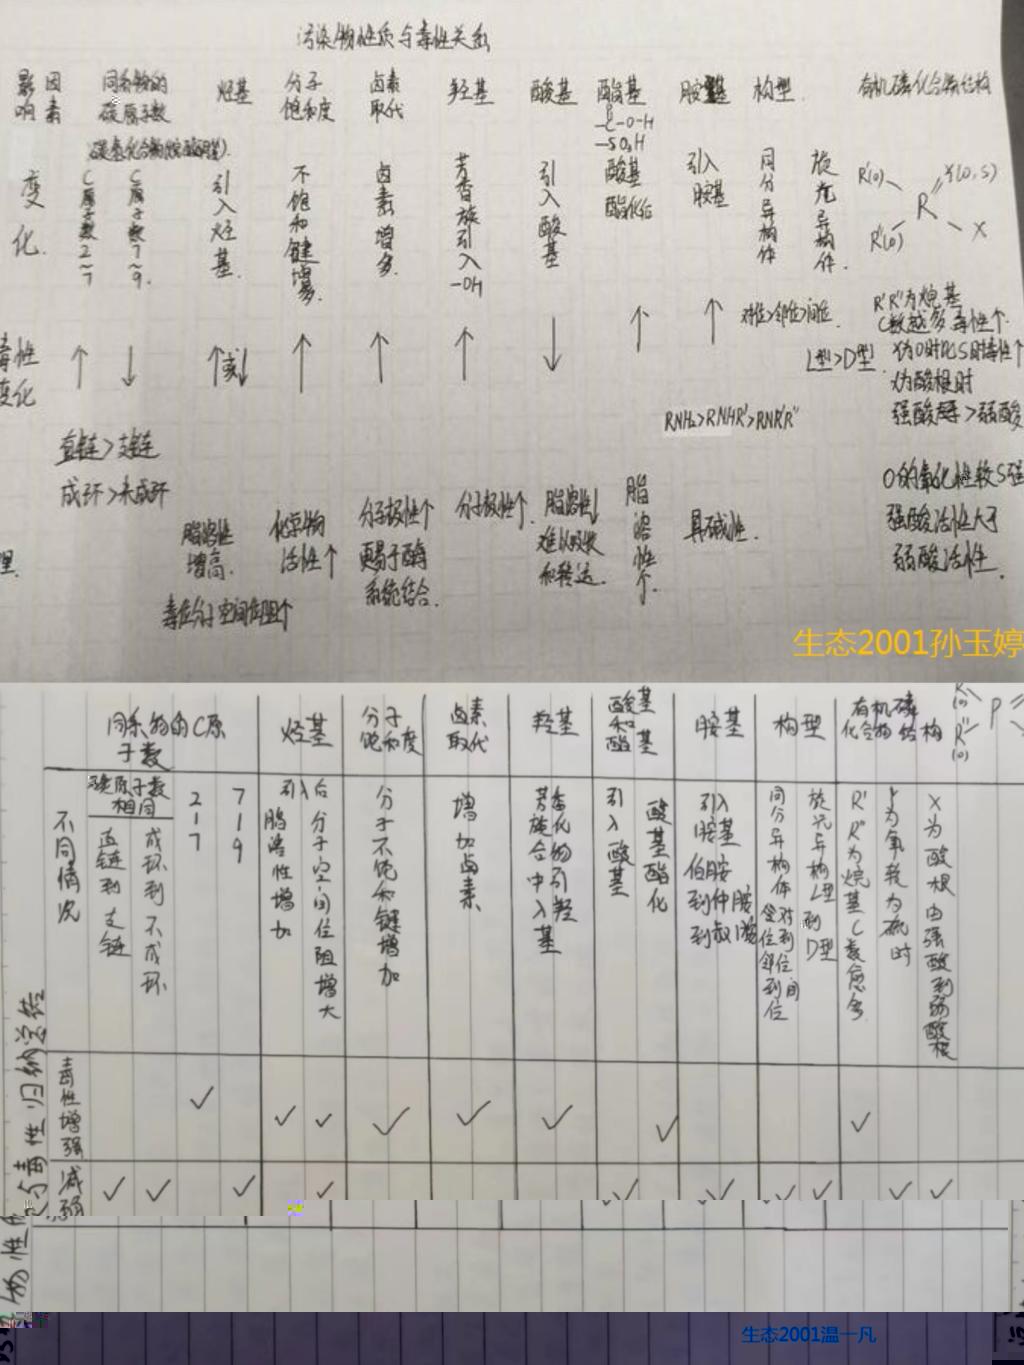 污染物性质与毒性关系
影响因素 同系物的碳原子数 烃基 分子饱和度 卤素取代 羟基 酸基 酯基 胺基 构型 有机磷化合物结构
-C-O-H
-SO₃H
变化
C原子数2~7
C原子数7~9
引入烃基
不饱和键增多
卤素增多
芳香族引入-OH
引入酸基
酸基酯化后
引入胺基
同分异构体
旋光异构体
R'(O) Y(O,S)
R
R''(O) X
毒性变化 ↑ ↓ ↑或↓ ↑ ↑ ↑ ↓ ↑ ↑
对位>邻位>间位
L型>D型
R'R''为烷基
C数越多毒性↑
Y为O时比S时毒性↑
X为酸根时
强酸毒>弱酸
RNH₂>RNHR'>RNR'R''
直链>支链
成环>未成环
理
脂溶性增高
毒性分子空间位阻↑
化合物活性↑
分子极性↑
更易于酶系统结合
分子极性↑
脂溶性↓
难以吸收
和转运
脂溶性↑
具碱性
O的氧化性较S强
强酸活性大于
弱酸活性
生态2001孙玉婷
同系物的C原子数 烃基 分子饱和度 卤素取代 羟基 酸基和酯基 胺基 构型 有机磷化合物结构
R'(O) P
R''(O)
不同情况
碳原子数相同
直链到支链
成环到不成环
2-7
7-9
引入后
脂溶性增加
分子空间位阻增大
分子不饱和键增加
增加卤素
芳香族化合物中引入羟基
引入酸基
酸基酯化
引入胺基
伯胺到仲胺到叔胺
同分异构体对位到邻位到间位
旋光异构L型到D型
R'R''为烷基C数愈多
Y为氧较为硫时
X为酸根由强酸到弱酸根
毒性增强 ✓ ✓ ✓ ✓ ✓ ✓ ✓ ✓
减弱 ✓ ✓ ✓ ✓ ✓ ✓ ✓ ✓ ✓ ✓
与毒性归纳总结
物性
生态2001温一凡